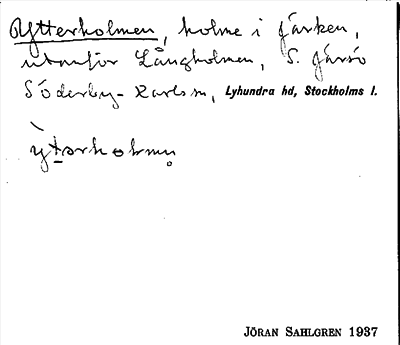 Ytterholmen, holme i Järken,
utanför Långholmen, S. Järsö
Söderby-Karls sn, Lyhundra hd, Stockholms l.
JÖRAN SAHLGREN 1937